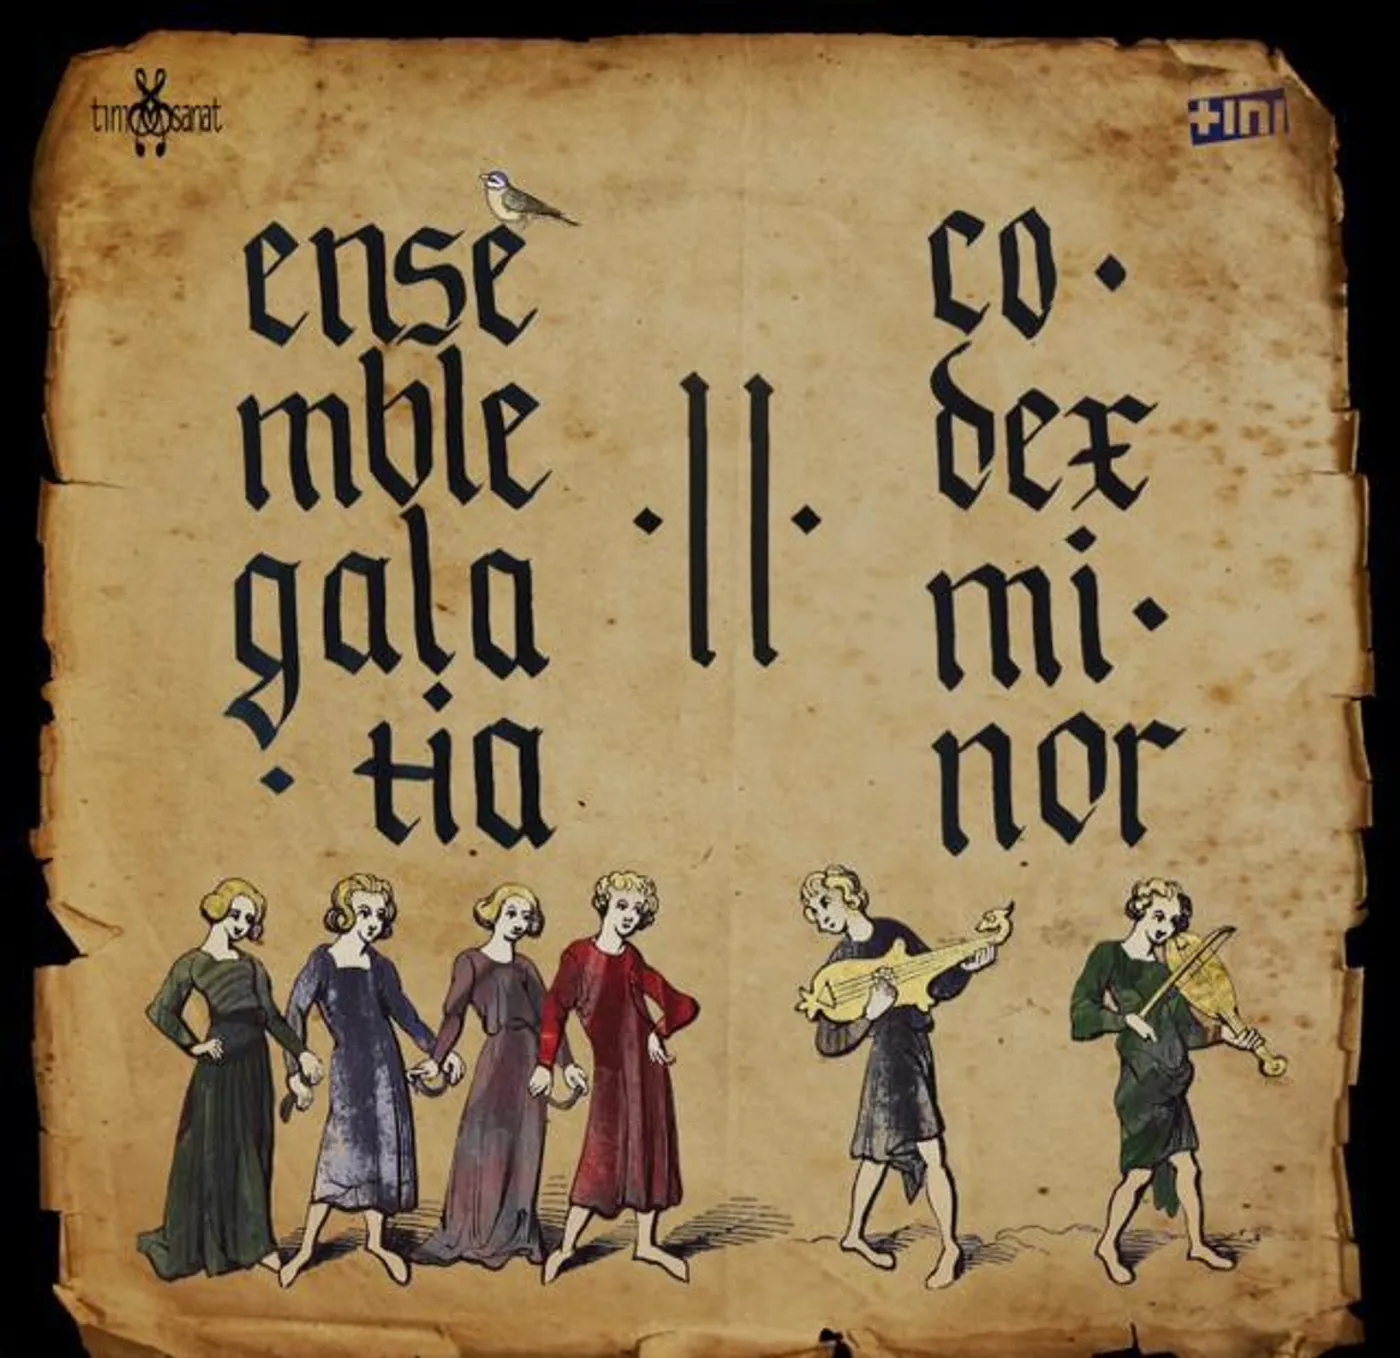 timsanat
tini
ense
mble
gala
· tia
· || ·
co ·
dex
mi ·
nor